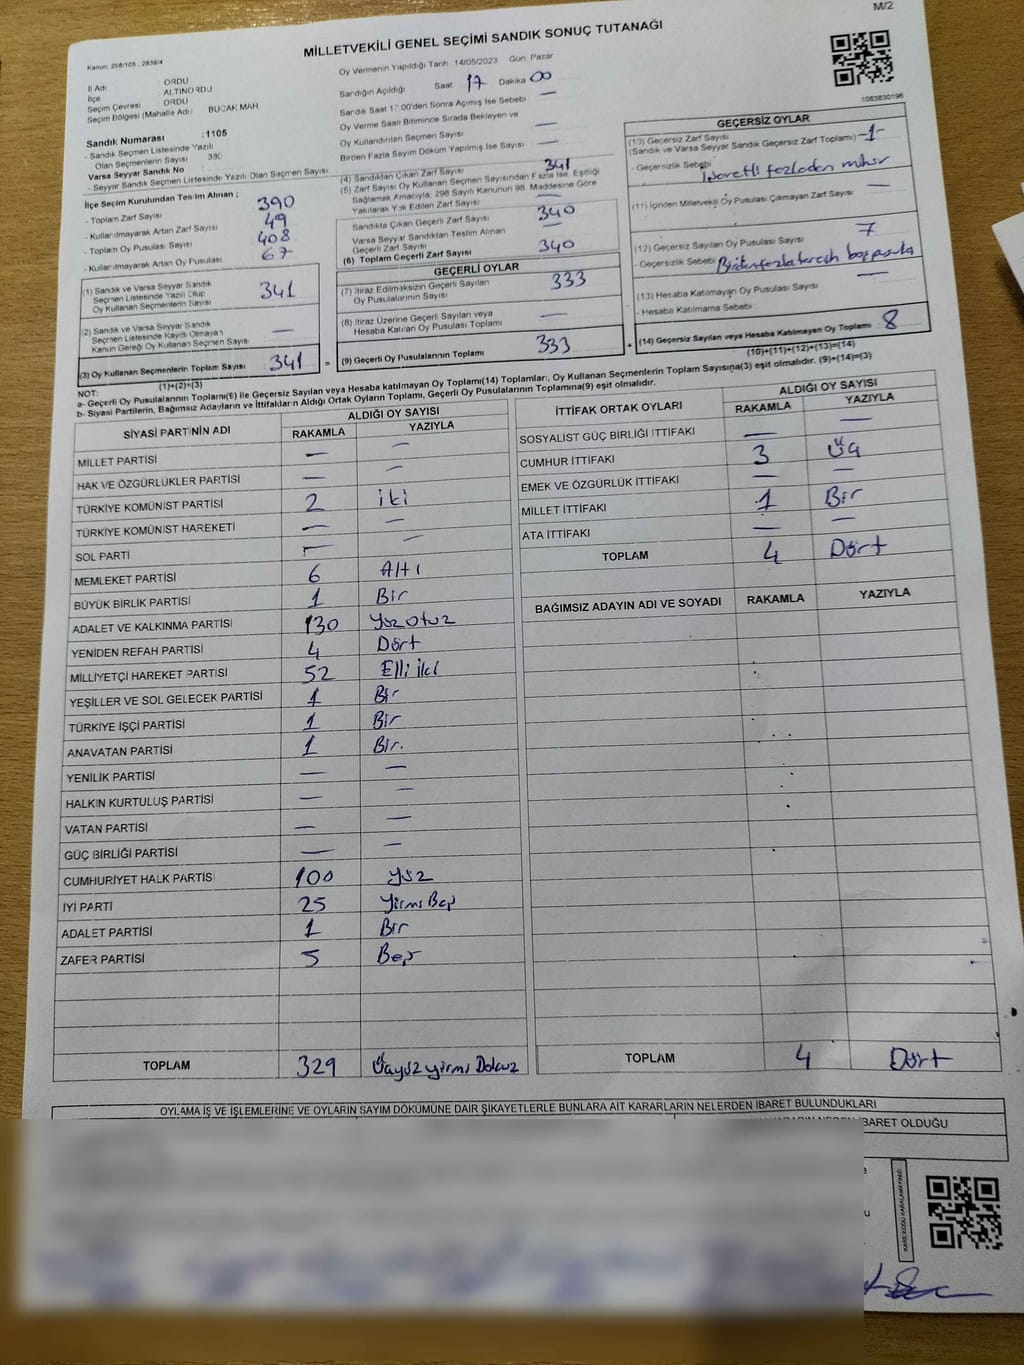 M/2
MİLLETVEKİLİ GENEL SEÇİMİ SANDIK SONUÇ TUTANAĞI
Kanun: 298/105 ; 2839/4
İl Adı : ORDU
İlçe : ALTINORDU
Seçim Çevresi : ORDU
Seçim Bölgesi (Mahalle Adı) : BUCAK MAH.
Sandık Numarası : 1105
- Sandık Seçmen Listesinde Yazılı
Olan Seçmenlerin Sayısı : 390
Varsa Seyyar Sandık No :
- Seyyar Sandık Seçmen Listesinde Yazılı Olan Seçmen Sayısı
İlçe Seçim Kurulundan Teslim Alınan ;
- Toplam Zarf Sayısı 390
- Kullanılmayarak Artan Zarf Sayısı 49
- Toplam Oy Pusulası Sayısı 408
- Kullanılmayarak Artan Oy Pusulası 67
(1) Sandık ve Varsa Seyyar Sandık
Seçmen Listesinde Yazılı Olup
Oy Kullanan Seçmenlerin Sayısı 341
(2) Sandık ve Varsa Seyyar Sandık
Seçmen Listesinde Kayıtlı Olmayan
Kanun Gereği Oy Kullanan Seçmen Sayısı —
(3) Oy Kullanan Seçmenlerin Toplam Sayısı 341
(1)+(2)=(3)
Oy Vermenin Yapıldığı Tarih : 14/05/2023 Gün: Pazar
Sandığın Açıldığı Saat 17 Dakika 00
Sandık Saat 17:00'den Sonra Açılmış İse Sebebi —
Oy Verme Saati Bitiminde Sırada Bekleyen ve
Oy Kullandırılan Seçmen Sayısı —
Birden Fazla Sayım Döküm Yapılmış İse Sayısı —
(4) Sandıktan Çıkan Zarf Sayısı 341
(5) Zarf Sayısı Oy Kullanan Seçmen Sayısından Fazla İse, Eşitliği
Sağlamak Amacıyla; 298 Sayılı Kanunun 98. Maddesine Göre
Yakılarak Yok Edilen Zarf Sayısı —
Sandıkta Çıkan Geçerli Zarf Sayısı 340
Varsa Seyyar Sandıktan Teslim Alınan
Geçerli Zarf Sayısı —
(6) Toplam Geçerli Zarf Sayısı 340
GEÇERLİ OYLAR
(7) İtiraz Edilmeksizin Geçerli Sayılan
Oy Pusulalarının Sayısı 333
(8) İtiraz Üzerine Geçerli Sayılan veya
Hesaba Katılan Oy Pusulası Toplamı —
= (9) Geçerli Oy Pusulalarının Toplamı 333
1083830196
GEÇERSİZ OYLAR
(10) Geçersiz Zarf Sayısı
(Sandık ve Varsa Seyyar Sandık Geçersiz Zarf Toplamı) -1-
- Geçersizlik Sebebi
(11) İçinden Milletvekili Oy Pusulası Çıkmayan Zarf Sayısı —
(12) Geçersiz Sayılan Oy Pusulası Sayısı 7
- Geçersizlik Sebebi
(13) Hesaba Katılmayan Oy Pusulası Sayısı —
- Hesaba Katılmama Sebebi
+ (14) Geçersiz Sayılan veya Hesaba Katılmayan Oy Toplamı 8
(10)+(11)+(12)+(13)=(14)
NOT:
a- Geçerli Oy Pusulalarının Toplamı(9) ile Geçersiz Sayılan veya Hesaba katılmayan Oy Toplamı(14) Toplamları, Oy Kullanan Seçmenlerin Toplam Sayısına(3) eşit olmalıdır. (9)+(14)=(3)
b- Siyasi Partilerin, Bağımsız Adayların ve İttifakların Aldığı Ortak Oyların Toplamı, Geçerli Oy Pusulalarının Toplamına(9) eşit olmalıdır.
SİYASİ PARTİNİN ADI ALDIĞI OY SAYISI
RAKAMLA YAZIYLA
MİLLET PARTİSİ — —
HAK VE ÖZGÜRLÜKLER PARTİSİ — —
TÜRKİYE KOMÜNİST PARTİSİ 2 iki
TÜRKİYE KOMÜNİST HAREKETİ — —
SOL PARTİ — —
MEMLEKET PARTİSİ 6 Altı
BÜYÜK BİRLİK PARTİSİ 1 Bir
ADALET VE KALKINMA PARTİSİ 130 Yüz otuz
YENİDEN REFAH PARTİSİ 4 Dört
MİLLİYETÇİ HAREKET PARTİSİ 52 Elli iki
YEŞİLLER VE SOL GELECEK PARTİSİ 1 Bir
TÜRKİYE İŞÇİ PARTİSİ 1 Bir
ANAVATAN PARTİSİ 1 Bir.
YENİLİK PARTİSİ — —
HALKIN KURTULUŞ PARTİSİ — —
VATAN PARTİSİ — —
GÜÇ BİRLİĞİ PARTİSİ — —
CUMHURİYET HALK PARTİSİ 100 Yüz
İYİ PARTİ 25 Yirmi Beş
ADALET PARTİSİ 1 Bir
ZAFER PARTİSİ 5 Beş
TOPLAM 329 Üçyüz yirmi Dokuz
İTTİFAK ORTAK OYLARI ALDIĞI OY SAYISI
RAKAMLA YAZIYLA
SOSYALİST GÜÇ BİRLİĞİ İTTİFAKI — —
CUMHUR İTTİFAKI 3 Üç
EMEK VE ÖZGÜRLÜK İTTİFAKI — —
MİLLET İTTİFAKI 1 Bir
ATA İTTİFAKI — —
TOPLAM 4 Dört
BAĞIMSIZ ADAYIN ADI VE SOYADI RAKAMLA YAZIYLA
TOPLAM 4 Dört
OYLAMA İŞ VE İŞLEMLERİNE VE OYLARIN SAYIM DÖKÜMÜNE DAİR ŞİKAYETLERLE BUNLARA AİT KARARLARIN NELERDEN İBARET BULUNDUKLARI
İBARET OLDUĞU